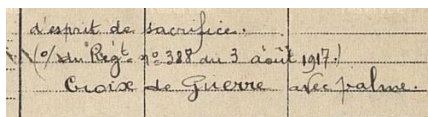 d'esprit de sacrifice.
(O/ du Régt n° 387 du 3 août 1917.)
Croix de Guerre avec palme.